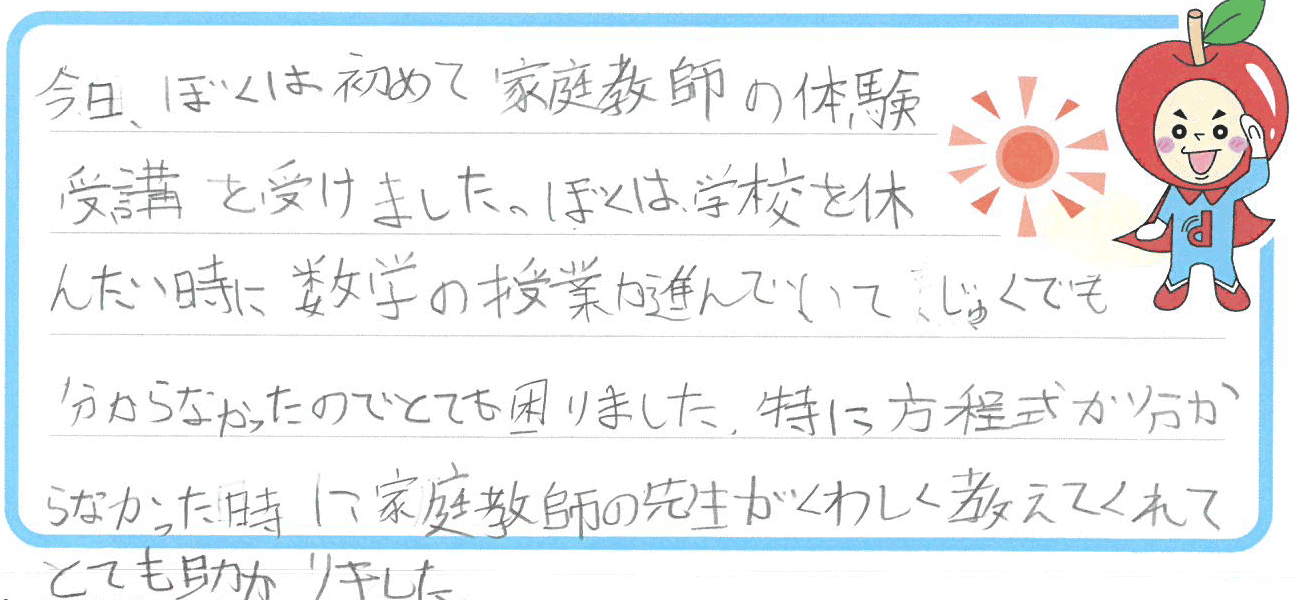 今日、ぼくは初めて家庭教師の体験
受講を受けました。ぼくは、学校を休
んだい時に数学の授業が進んでいて じゅくでも
分からなかったのでとても困りました。特に方程式が分か
らなかった時に家庭教師の先生がくわしく教えてくれて
とても助かりました
d